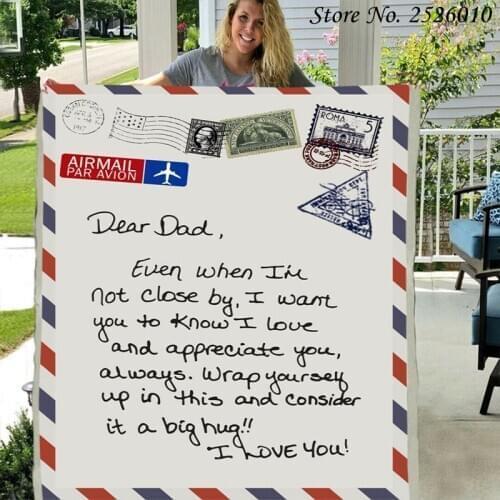 Store No. 2526010
ROMA 5
AIRMAIL
PAR AVION
Dear Dad,
Even when I'm
not close by, I want
you to know I love
and appreciate you,
always. Wrap yourself
up in this and consider
it a big hug!!
I LOVE YOU!